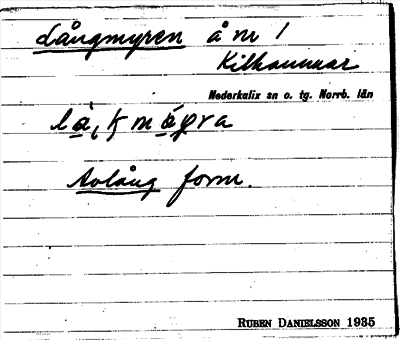 Långmyren å nr 1
Kilhammar
Nederkalix sn o. tg. Norrb. län
Avlång form.
RUBEN DANIELSSON 1935